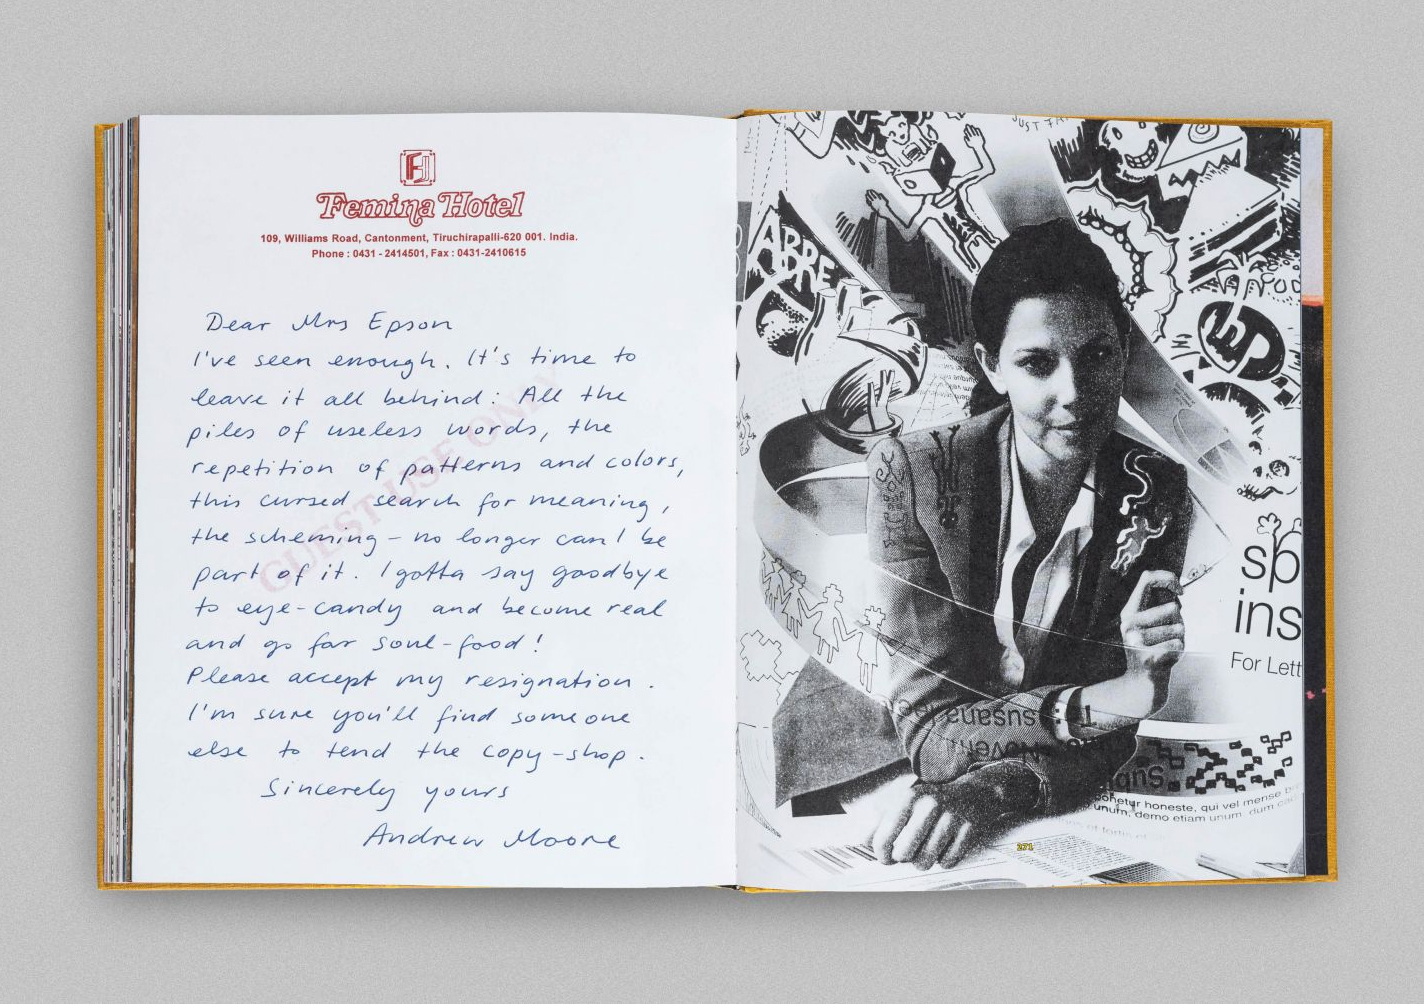 Femina Hotel
109, Williams Road, Cantonment, Tiruchirapalli-620 001. India.
Phone : 0431 - 2414501, Fax : 0431-2410615
GUEST USE ONLY
Dear Mrs Epson
I've seen enough. It's time to
leave it all behind: All the
piles of useless words, the
repetition of patterns and colors,
this cursed search for meaning,
the scheming – no longer can I be
part of it. I gotta say goodbye
to eye-candy and become real
and go for soul-food!
Please accept my resignation.
I'm sure you'll find someone
else to tend the copy-shop.
Sincerely yours
Andrew Moore
JUST
sp
ins
For Lett
susanne
honeste, qui vel mense
unum, demo etiam unum dum
271